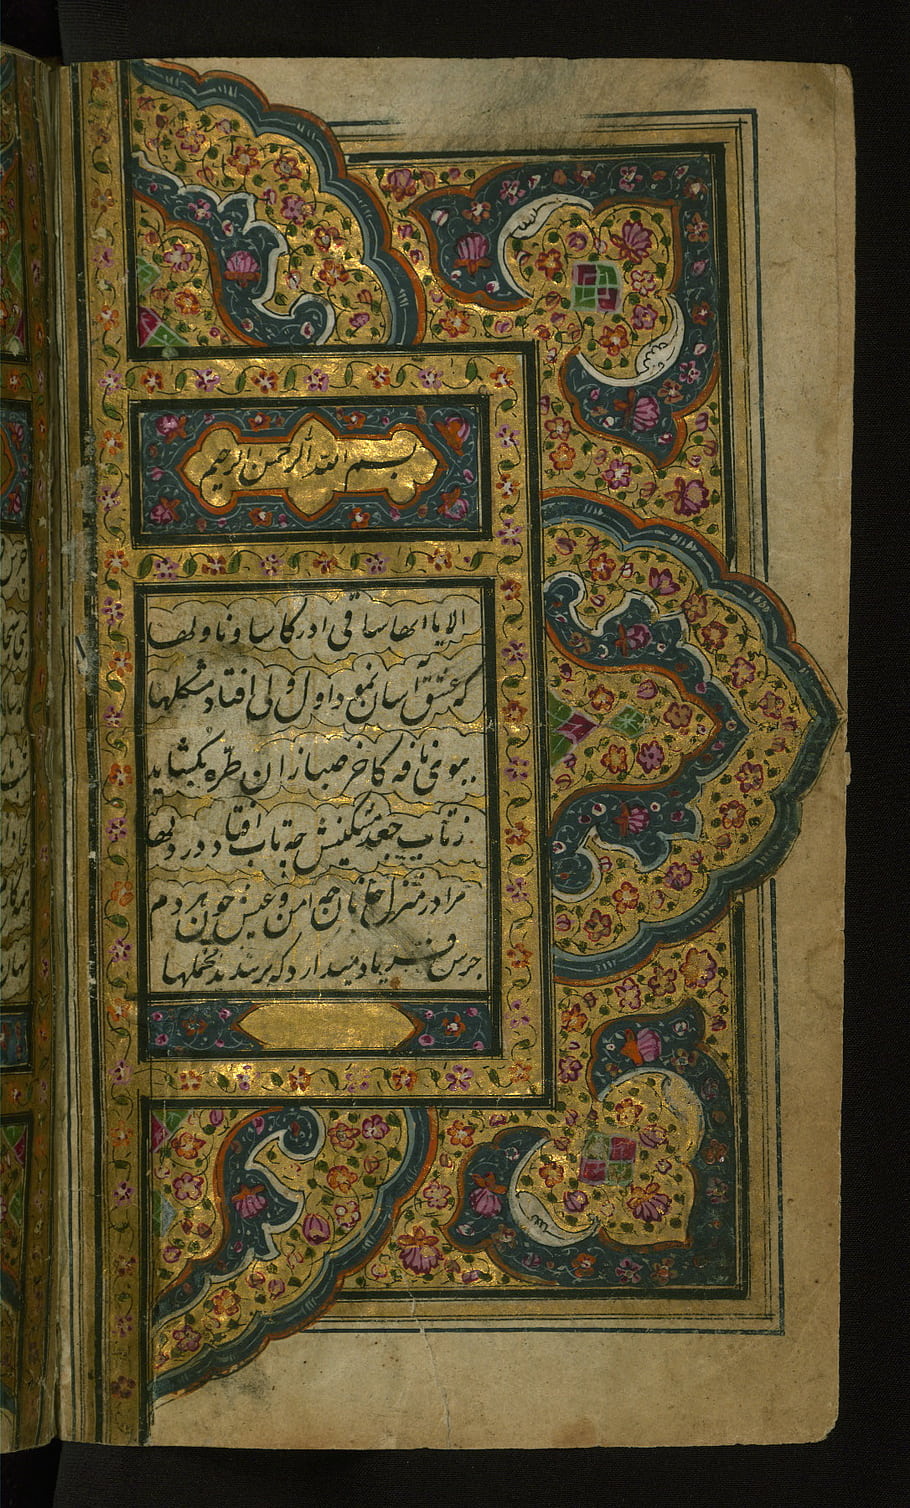 بسم الله الرحمن الرحیم
الا یا ایها ساقی ادر کاسا و ناولها
که عشق آسان نمود اول ولی افتاد مشکلها
ببوی نافه کاخر صبا زان طره بکشاید
ز تاب جعد مشکینش چه تاب افتاد در دلها
مرا در منزل جانان چه امن و عیش چون هر دم
جرس فریاد میدارد که بربندید محملها